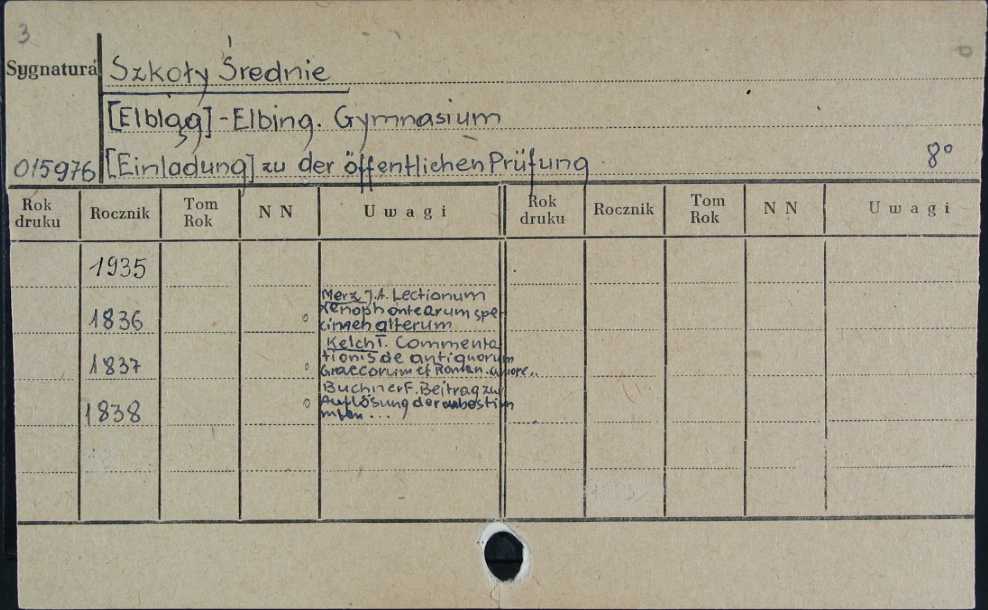 3
Sygnatura Szkoły Średnie
[Elbląg] - Elbing. Gymnasium
015976 [Einladung] zu der öffentlichen Prüfung 8°
Rok druku Rocznik Tom Rok N N Uwagi Rok druku Rocznik Tom Rok N N Uwagi
1935
1836 Merz J.A. Lectionum
Xenophontearum spe-
cimen alterum
1837 Kelch I. Commenta
tionis de antiquorum
Graecorum et Roman. amore..
1838 Buchner F. Beitrag zur
Auflösung der unbestim
mten ...